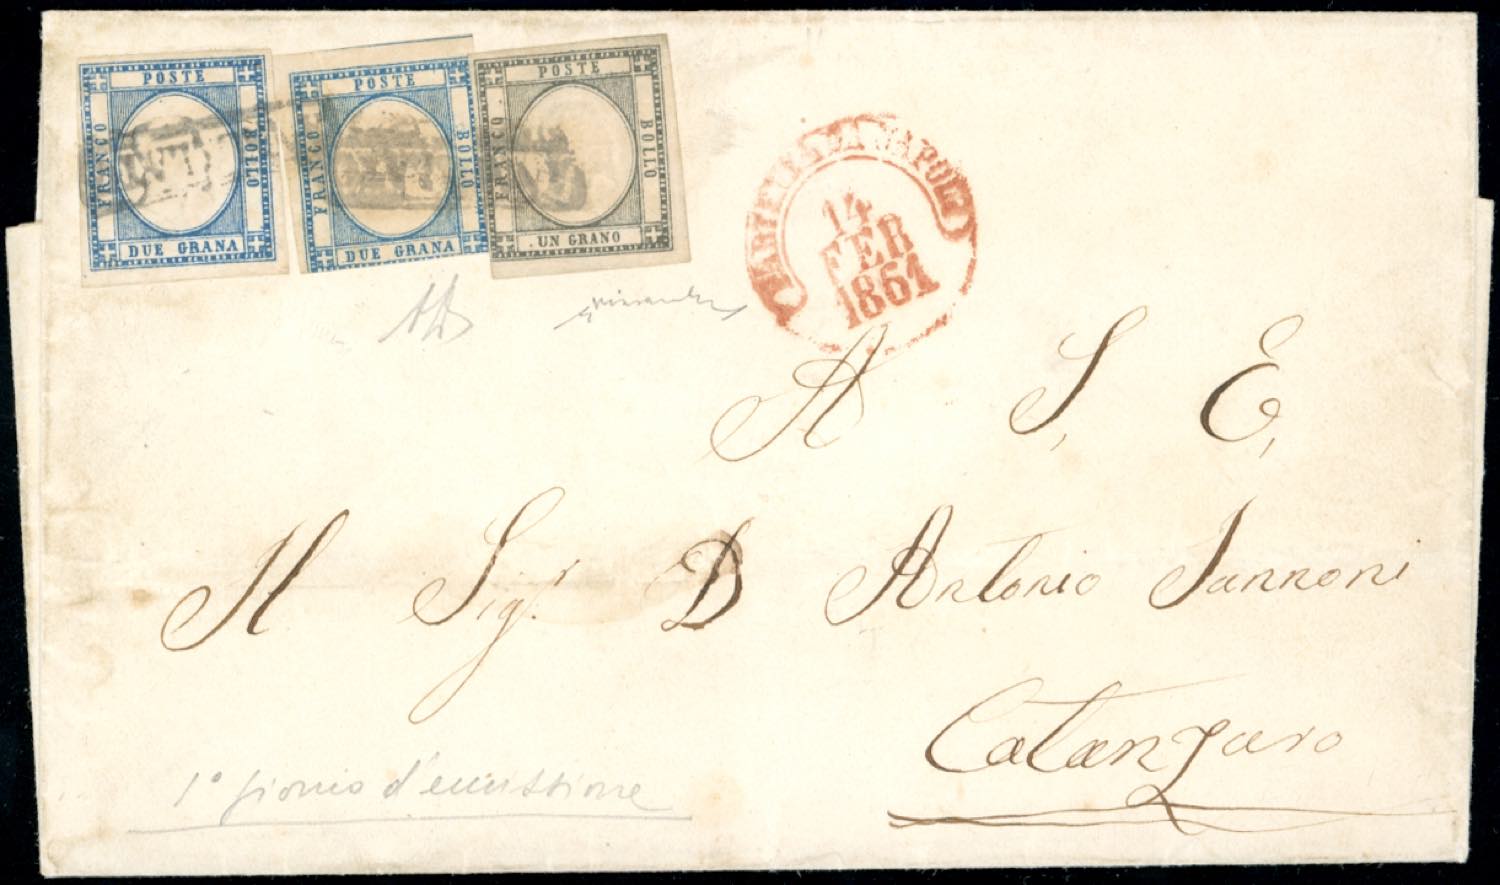 POSTE
FRANCO
BOLLO
DUE GRANA
POSTE
FRANCO
BOLLO
DUE GRANA
POSTE
FRANCO
BOLLO
UN GRANO
ANNULLATO
PARTENZA DA NAPOLI
14
FEB
1861
A S. E.
Il Sigr. D Antonio Iannoni
Catanzaro
1° giorno d'emissione